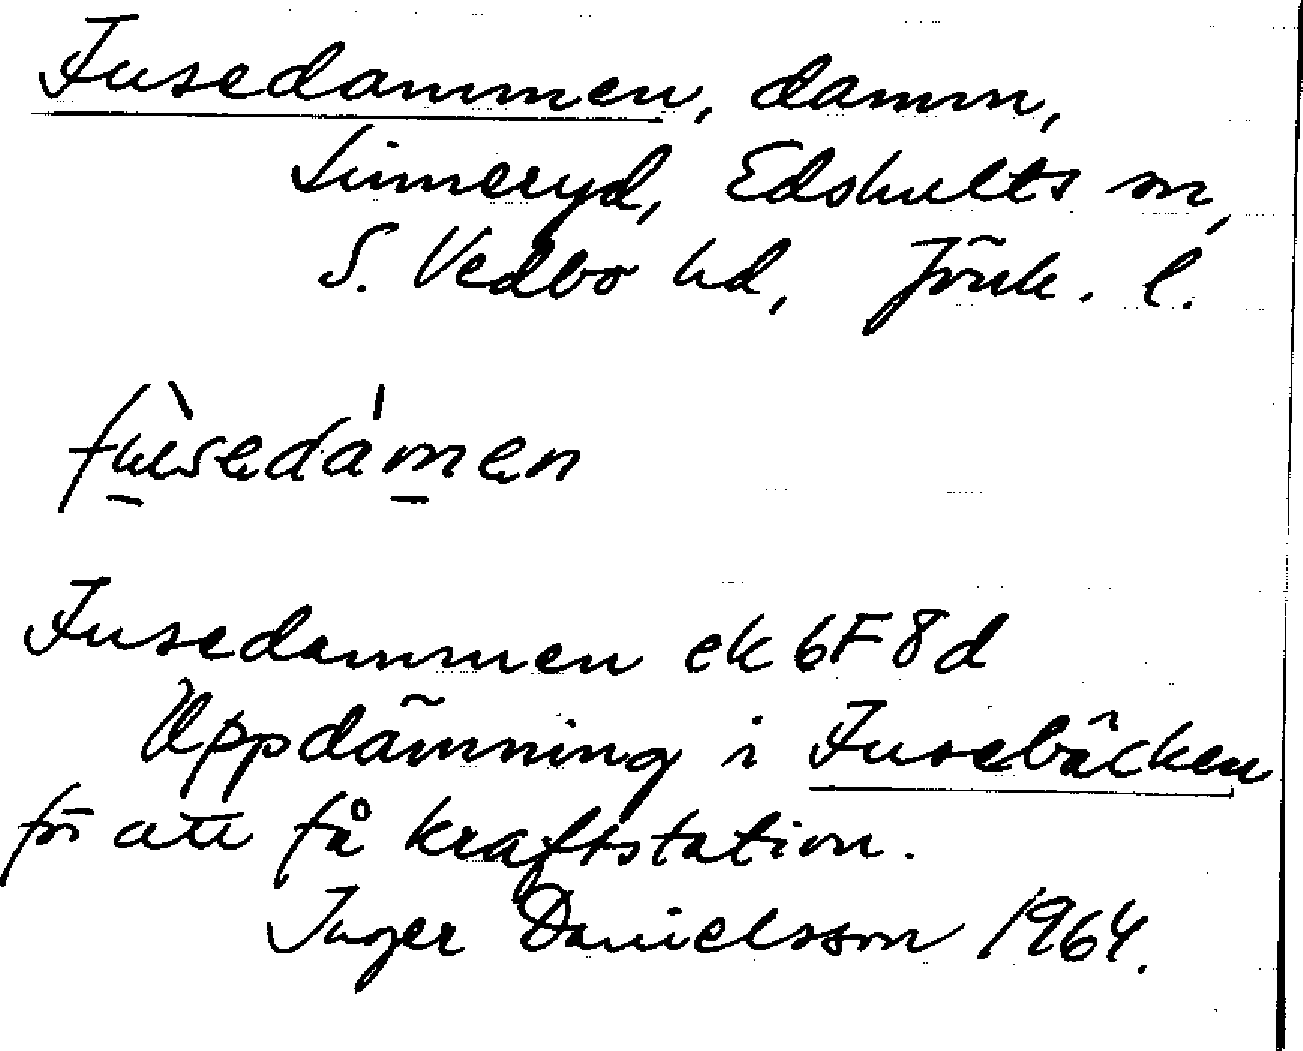 Fusedammen, damm,
Linneryd, Edshults sn,
S. Vedbo hd, Jönk. l.
fusedamen
Fusedammen ek 6F8d
Uppdämning i Fusebäcken
för att få kraftstation.
Inger Danielsson 1964.